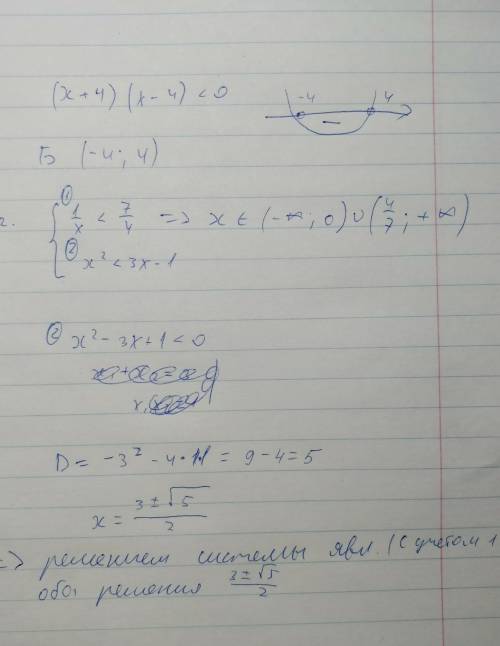 (x+4)(x-4)<0
-4 4
−
Б (-4; 4)
2. { ① 1/x < 7/4 => x ∈ (-∞; 0) ∪ (4/7; +∞)
② x² < 3x-1
② x² - 3x + 1 < 0
D = -3² - 4·1·1 = 9-4 = 5
x = (3 ± √5)/2
=> решением системы явл. (с учетом 1
оба решения (3 ± √5)/2